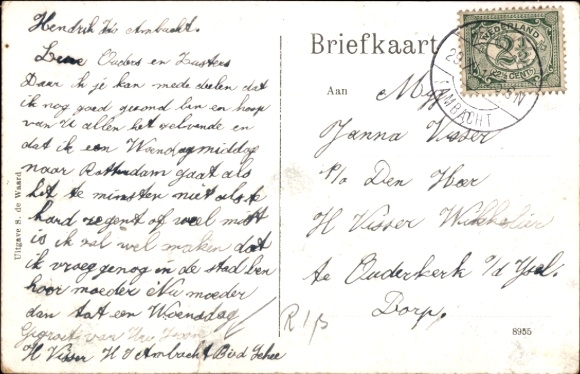 Hendrik Ido Ambacht.
Lieve Ouders en Zusters
Daar ik je kan mede deelen dat
ik nog goed gezond ben en hoop
van u allen het zelvende en
dat ik een Woensdagmiddag
naar Rotterdam gaat als
het te minsten niet als te
hard regent of veel mist
is ik zal wel maken dat
ik vroeg genog in de stad ben
hoor moeder Nu moeder
dan tot een Woensdag
H Visser H I Ambacht
Uitgave S. de Waard
Briefkaart
NEDERLAND
2½
AMBACHT
Aan
Mej
Janna Visser
p/a Den Heer
H Visser
te Ouderkerk a/d Ysel.
Dorp.
8955